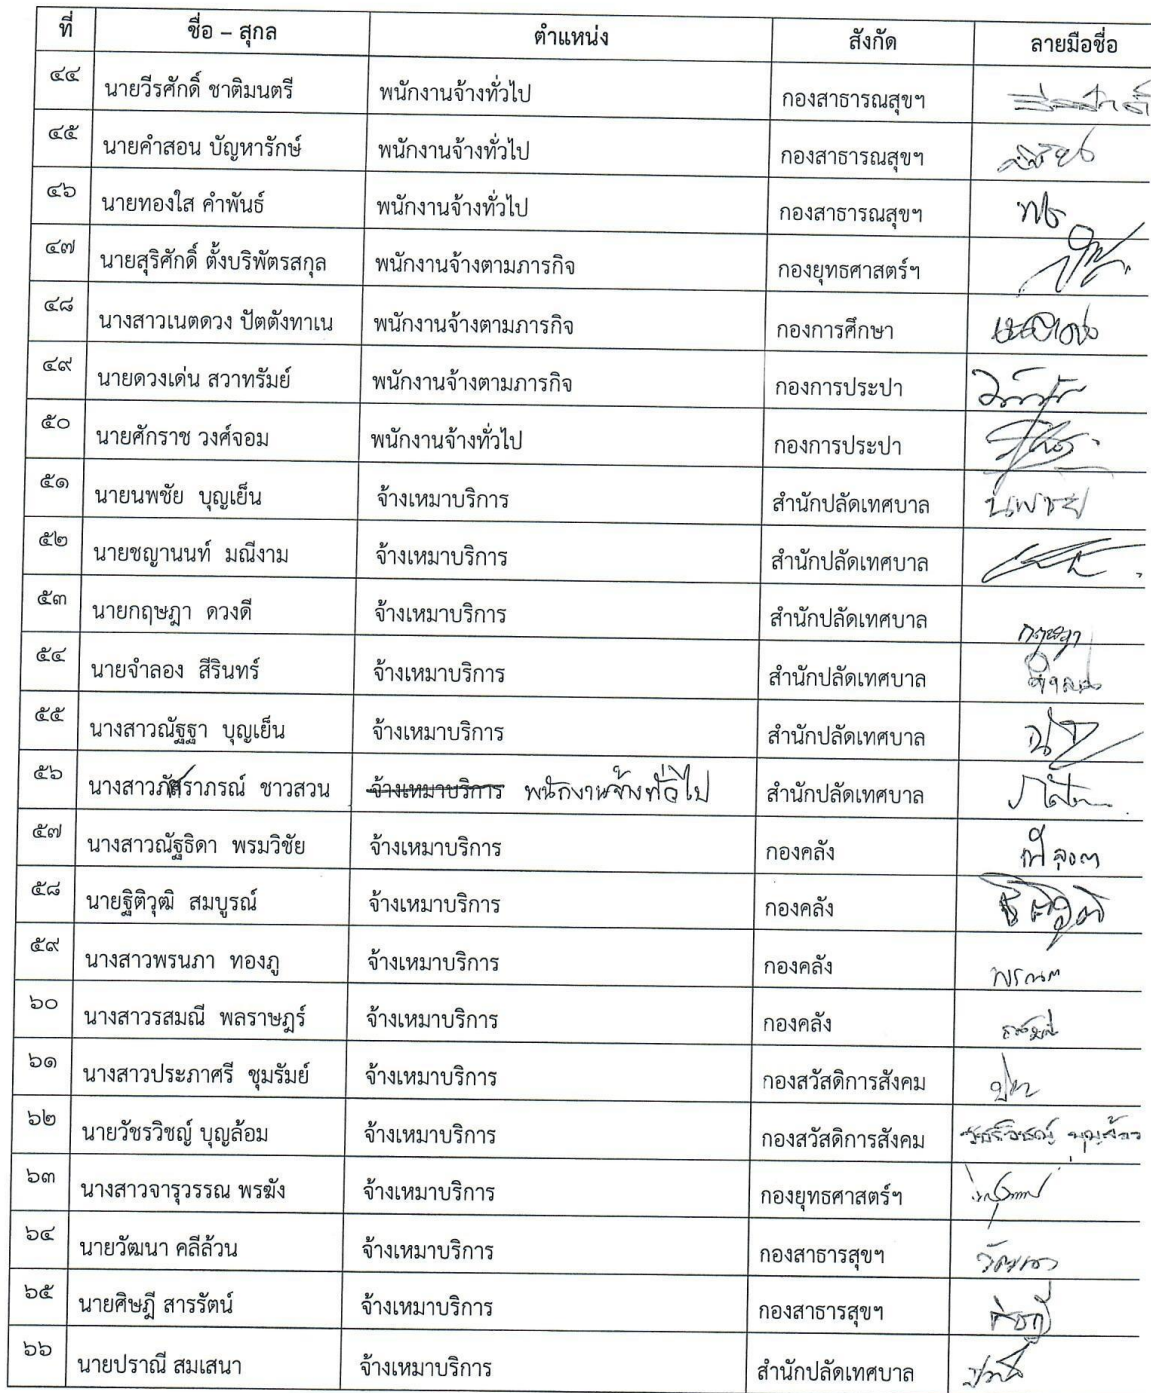 ที่ ชื่อ – สุกล ตำแหน่ง สังกัด ลายมือชื่อ
๔๔ นายวีรศักดิ์ ชาติมนตรี พนักงานจ้างทั่วไป กองสาธารณสุขฯ
๔๕ นายคำสอน บัญหารักษ์ พนักงานจ้างทั่วไป กองสาธารณสุขฯ
๔๖ นายทองใส คำพันธ์ พนักงานจ้างทั่วไป กองสาธารณสุขฯ
๔๗ นายสุริศักดิ์ ตั้งบริพัตรสกุล พนักงานจ้างตามภารกิจ กองยุทธศาสตร์ฯ
๔๘ นางสาวเนตดวง ปัตตังทาเน พนักงานจ้างตามภารกิจ กองการศึกษา
๔๙ นายดวงเด่น สวาทรัมย์ พนักงานจ้างตามภารกิจ กองการประปา
๕๐ นายศักราช วงศ์จอม พนักงานจ้างทั่วไป กองการประปา
๕๑ นายนพชัย บุญเย็น จ้างเหมาบริการ สำนักปลัดเทศบาล นพชัย
๕๒ นายชญานนท์ มณีงาม จ้างเหมาบริการ สำนักปลัดเทศบาล
๕๓ นายกฤษฎา ดวงดี จ้างเหมาบริการ สำนักปลัดเทศบาล กฤษฎา
๕๔ นายจำลอง สีรินทร์ จ้างเหมาบริการ สำนักปลัดเทศบาล
๕๕ นางสาวณัฐฐา บุญเย็น จ้างเหมาบริการ สำนักปลัดเทศบาล
๕๖ นางสาวภัศราภรณ์ ชาวสวน จ้างเหมาบริการ พนักงานจ้างทั่วไป สำนักปลัดเทศบาล
๕๗ นางสาวณัฐธิดา พรมวิชัย จ้างเหมาบริการ กองคลัง
๕๘ นายฐิติวุฒิ สมบูรณ์ จ้างเหมาบริการ กองคลัง
๕๙ นางสาวพรนภา ทองภู จ้างเหมาบริการ กองคลัง พรนภา
๖๐ นางสาวรสมณี พลราษฎร์ จ้างเหมาบริการ กองคลัง
๖๑ นางสาวประภาศรี ชุมรัมย์ จ้างเหมาบริการ กองสวัสดิการสังคม
๖๒ นายวัชรวิชญ์ บุญล้อม จ้างเหมาบริการ กองสวัสดิการสังคม วัชรวิชญ์ บุญล้อม
๖๓ นางสาวจารุวรรณ พรฆัง จ้างเหมาบริการ กองยุทธศาสตร์ฯ
๖๔ นายวัฒนา คลีล้วน จ้างเหมาบริการ กองสาธารสุขฯ วัฒนา
๖๕ นายศิษฎี สารรัตน์ จ้างเหมาบริการ กองสาธารสุขฯ ศิษฎี
๖๖ นายปราณี สมเสนา จ้างเหมาบริการ สำนักปลัดเทศบาล